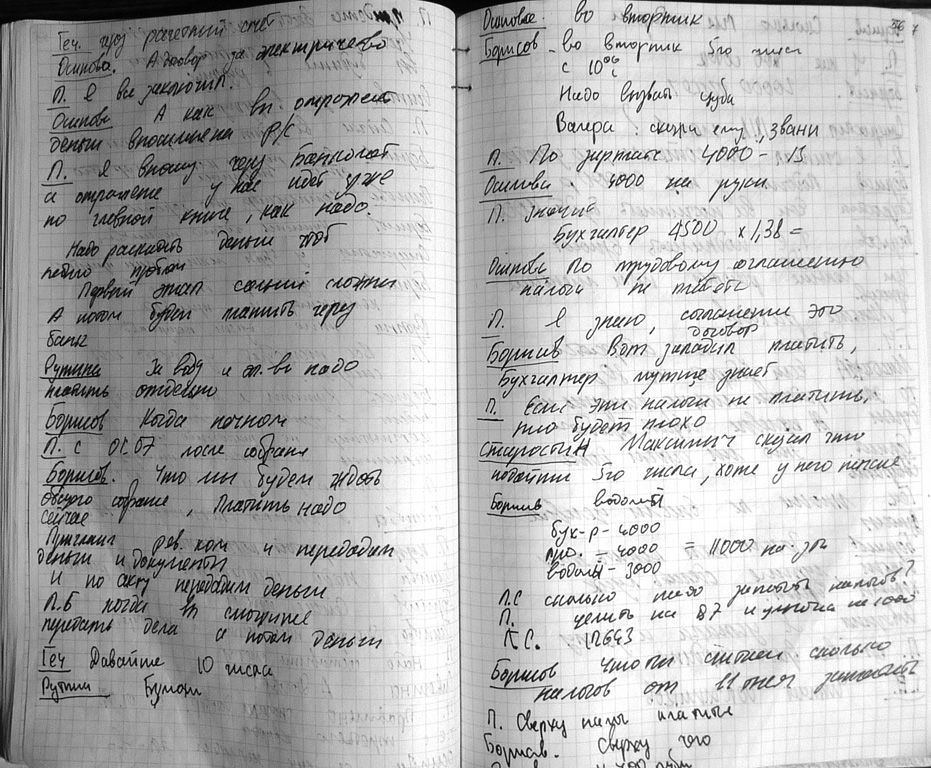 Геч. через расчетный счет
Осипова. А договор за электричество
П. Я все заключил.
Осипова А как вы отражаете
деньги вносимые на Р/С
П. Я вношу через Банкомат
и отражение у нас идет уже
по главной книге, как надо.
Надо раскидать деньги чтоб
Первый этап самый сложный
А потом будем платить через
банк
Рутина За воду и эл-во надо
платить отдельно
Борисов Когда начнем
П. с 01.07 после собрания
Борисов. Что мы будем ждать
общего собрание, Платить надо
сейчас
Пригласим рев. ком и передадим
деньги и документы
и по акту передадим деньги
П.Б когда вы сможете
передать дела и потом деньги
Геч Давайте 10 числа
Рутина
Осипова. во вторник
Борисов - во вторник 5го числа
с 10⁰⁰
Надо вызвать суда
Валера: скажи ему,
П. По зарплате 4000 -
Осипова. 4000 на руки.
П. значит
Бухгалтер 4500 х 1,38 =
Осипова По трудовому соглашению
налоги не платят
П. Я знаю, соглашение это
договор
Борисов Вот заладил платить,
Бухгалтер лучше знает
П. Если эти налоги не платить,
то будет плохо
Старостин Максимыч сказал что
5го числа, хоте у него
Борисов водолей
бух-р - 4000
пре. = 4000 = 11000 на з/п
водолей - 3000
П.С сколько надо заплатить налогов?
П. делить на 87 и умножить на 1000
П.С. 12643
Борисов Что ты считаем сколько
налогов от 11 тыс заплатить
П. Сверху надо платить
Борисов. Сверху чего